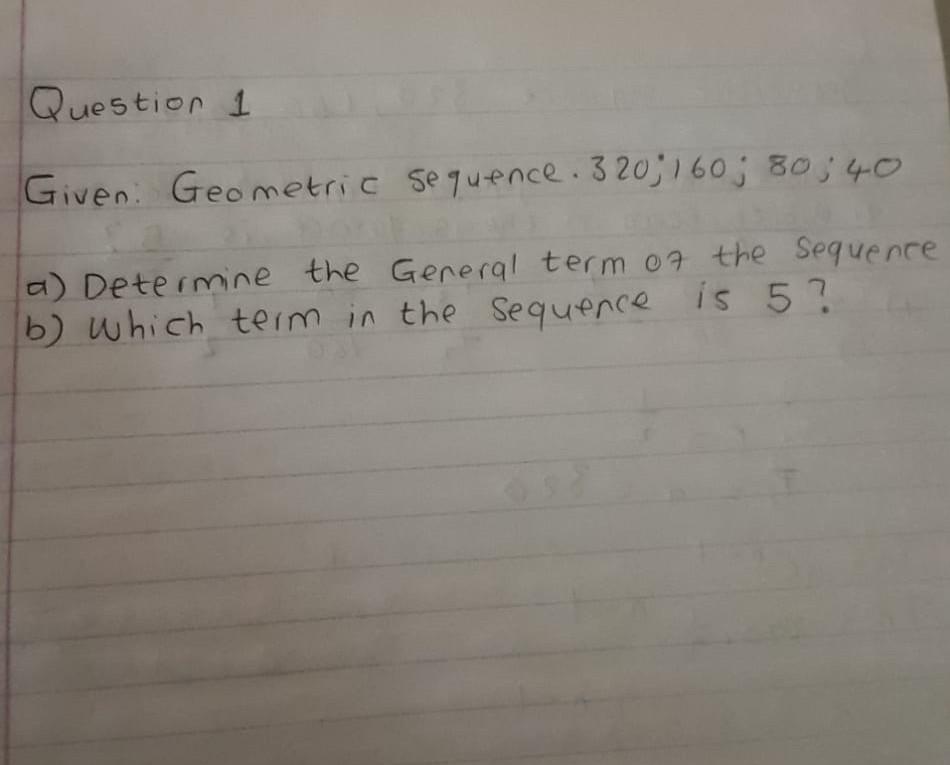 Question 1
Given: Geometric sequence. 320; 160; 80; 40
a) Determine the General term of the sequence
b) Which term in the sequence is 5?